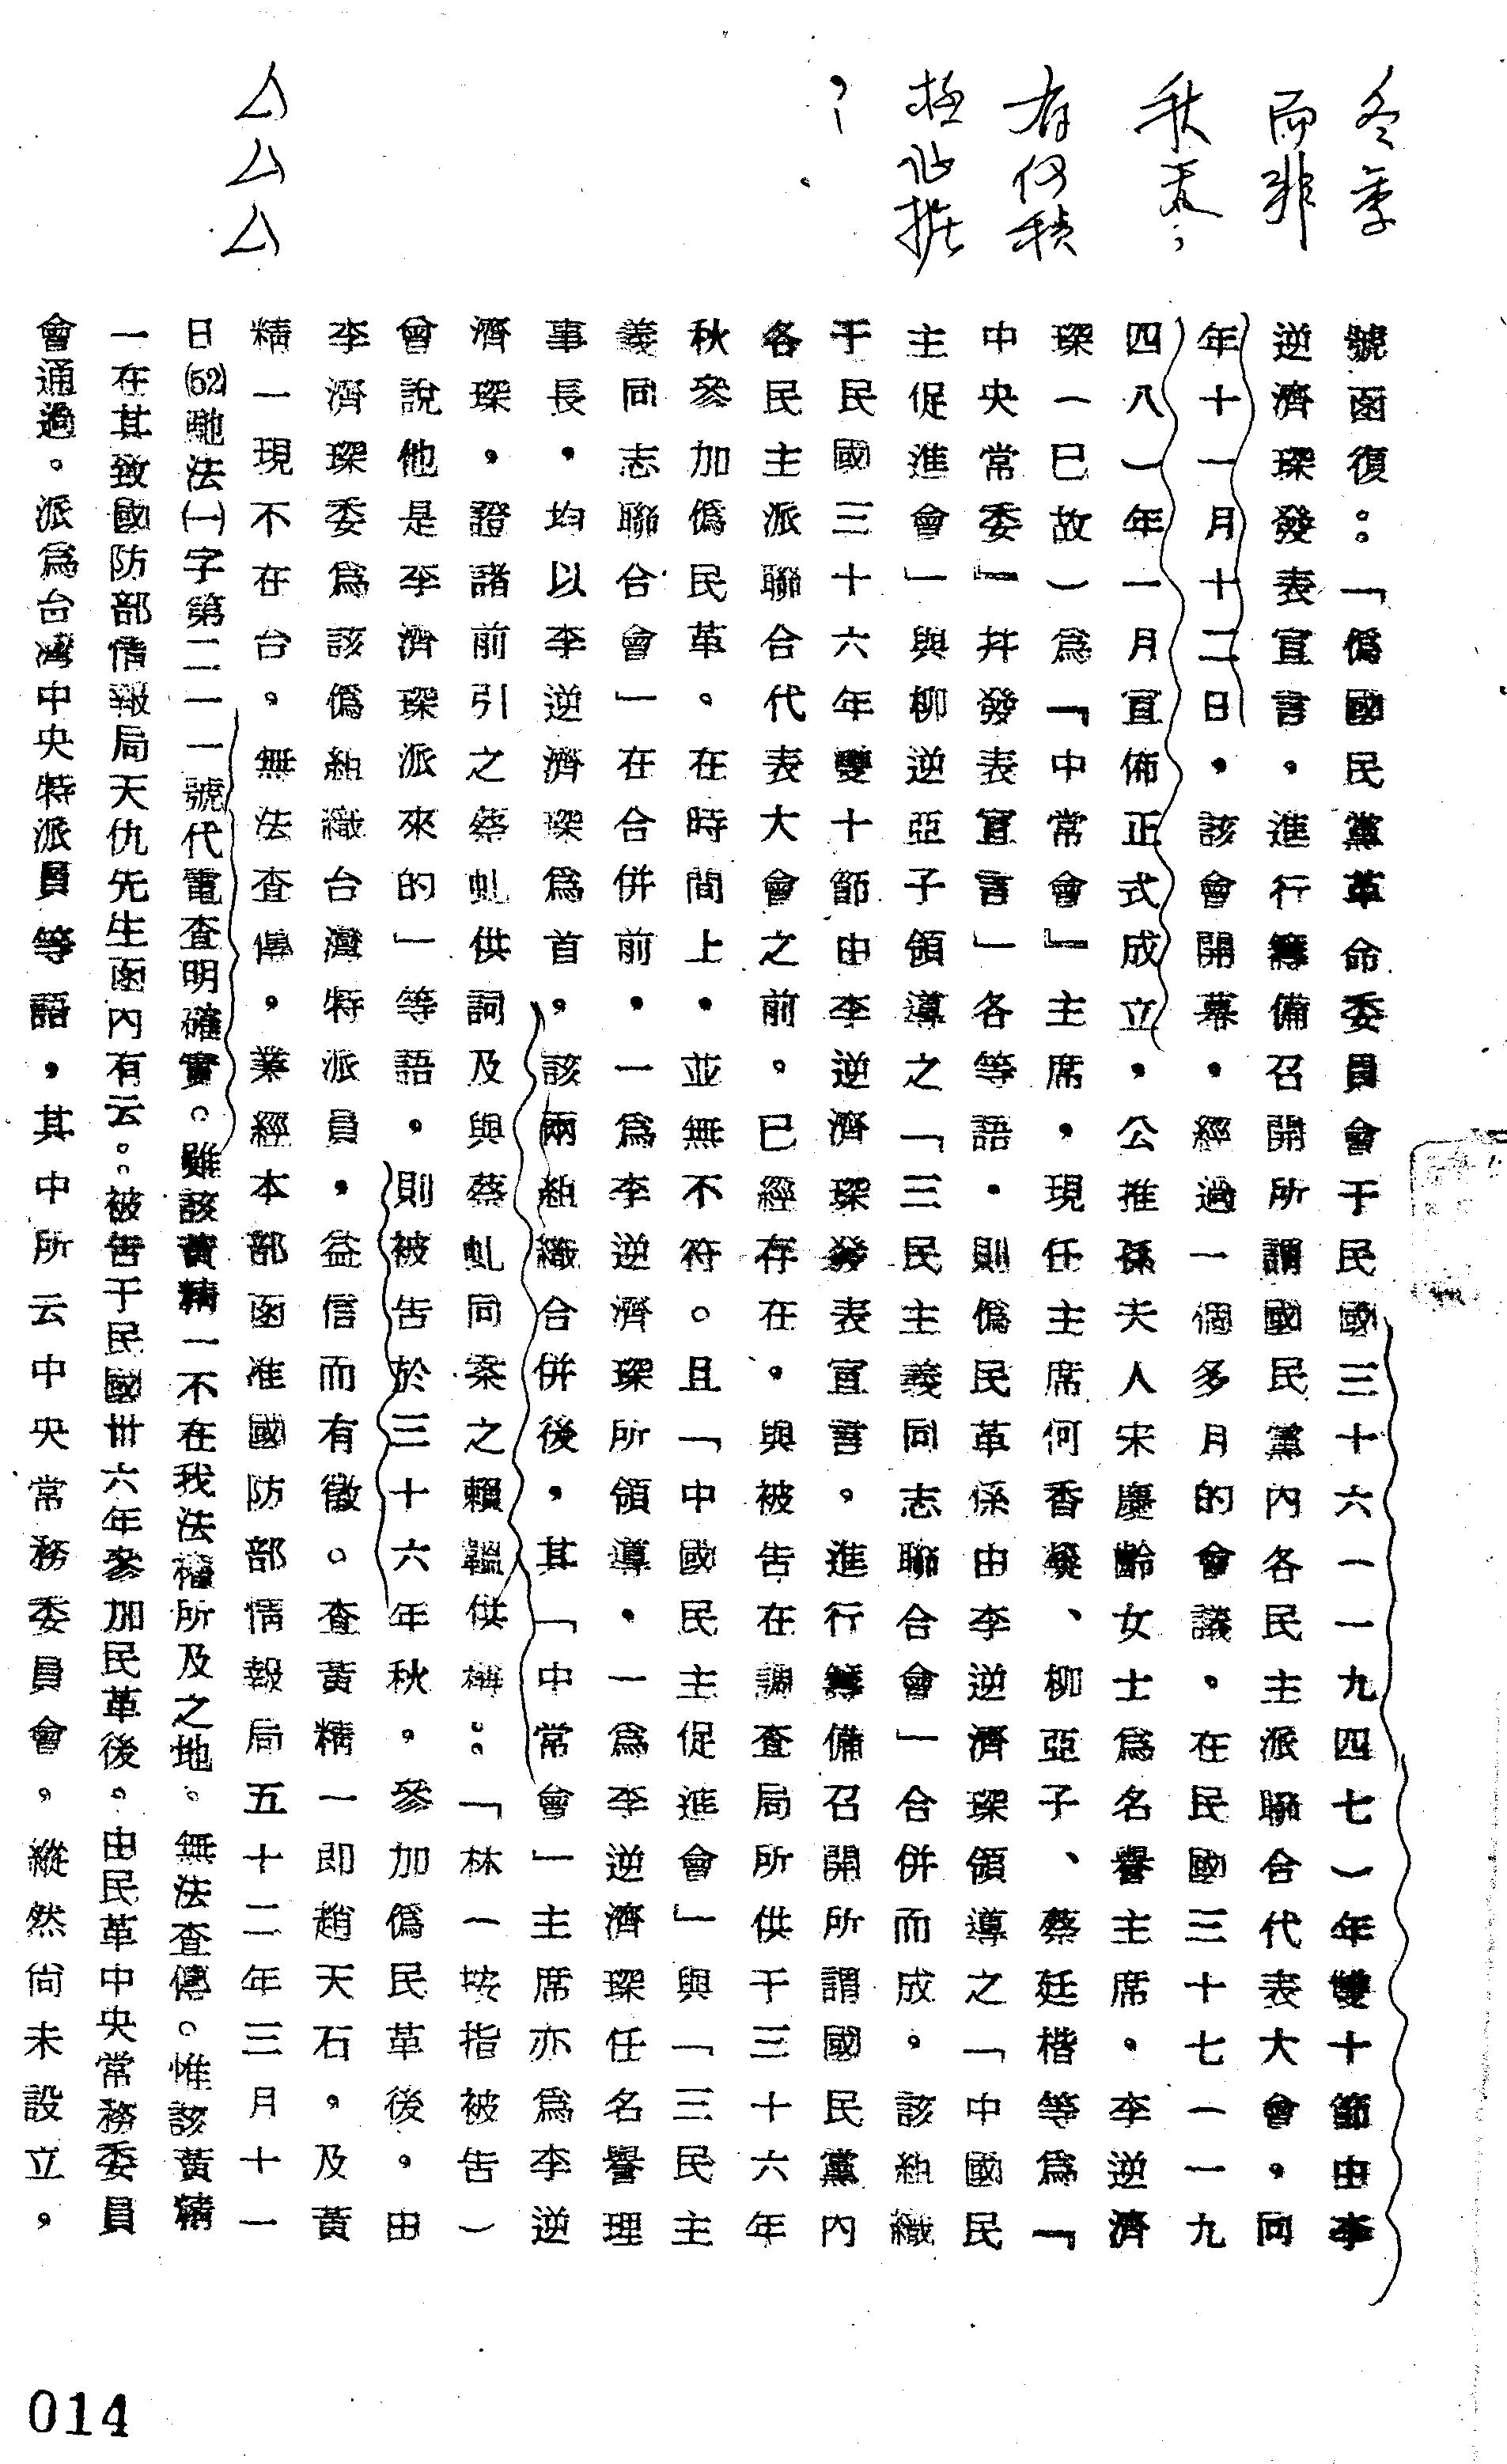 冬季
而非
秋天；
有何積
極證據
？
△△△
號函復：「偽國民黨革命委員會于民國三十六一一九四七）年雙十節由李
逆濟琛發表宣言，進行籌備召開所謂國民黨內各民主派聯合代表大會，同
年十一月十二日，該會開幕，經過一個多月的會議。在民國三十七一一九
四八）年一月宣佈正式成立，公推孫夫人宋慶齡女士為名譽主席，李逆濟
琛（已故）為「中常會」主席，現任主席何香凝、柳亞子、蔡廷楷等為「
中央常委」幷發表宣言」各等語，則偽民革係由李逆濟琛領導之「中國民
主促進會」與柳逆亞子領導之「三民主義同志聯合會」合併而成，該組織
于民國三十六年雙十節由李逆濟琛發表宣言，進行籌備召開所謂國民黨內
各民主派聯合代表大會之前。已經存在，與被告在調查局所供于三十六年
秋參加偽民革。在時間上，並無不符。且「中國民主促進會」與「三民主
義同志聯合會」在合併前，一為李逆濟琛所領導，一為李逆濟琛任名譽理
事長，均以李逆濟琛為首，該兩組織合併後，其「中常會」主席亦為李逆
濟琛，證諸前引之蔡虬供詞及與蔡虬同案之賴韞供稱：「林（按指被告）
曾說他是李濟琛派來的」等語，則被告於三十六年秋，參加偽民革後。由
李濟琛委為該偽組織台灣特派員，益信而有徵。查黃精一即趙天石，及黃
精一現不在台。無法查傳，業經本部函准國防部情報局五十二年三月十一
日(52)馳法(一)字第二一一號代電查明確實。雖該黃精一不在我法權所及之地。無法查傳。惟該黃精
一在其致國防部情報局天仇先生函內有云。被告于民國卅六年參加民革後。由民革中央常務委員
會通過。派為台灣中央特派員等語，其中所云中央常務委員會，縱然尚未設立，
014